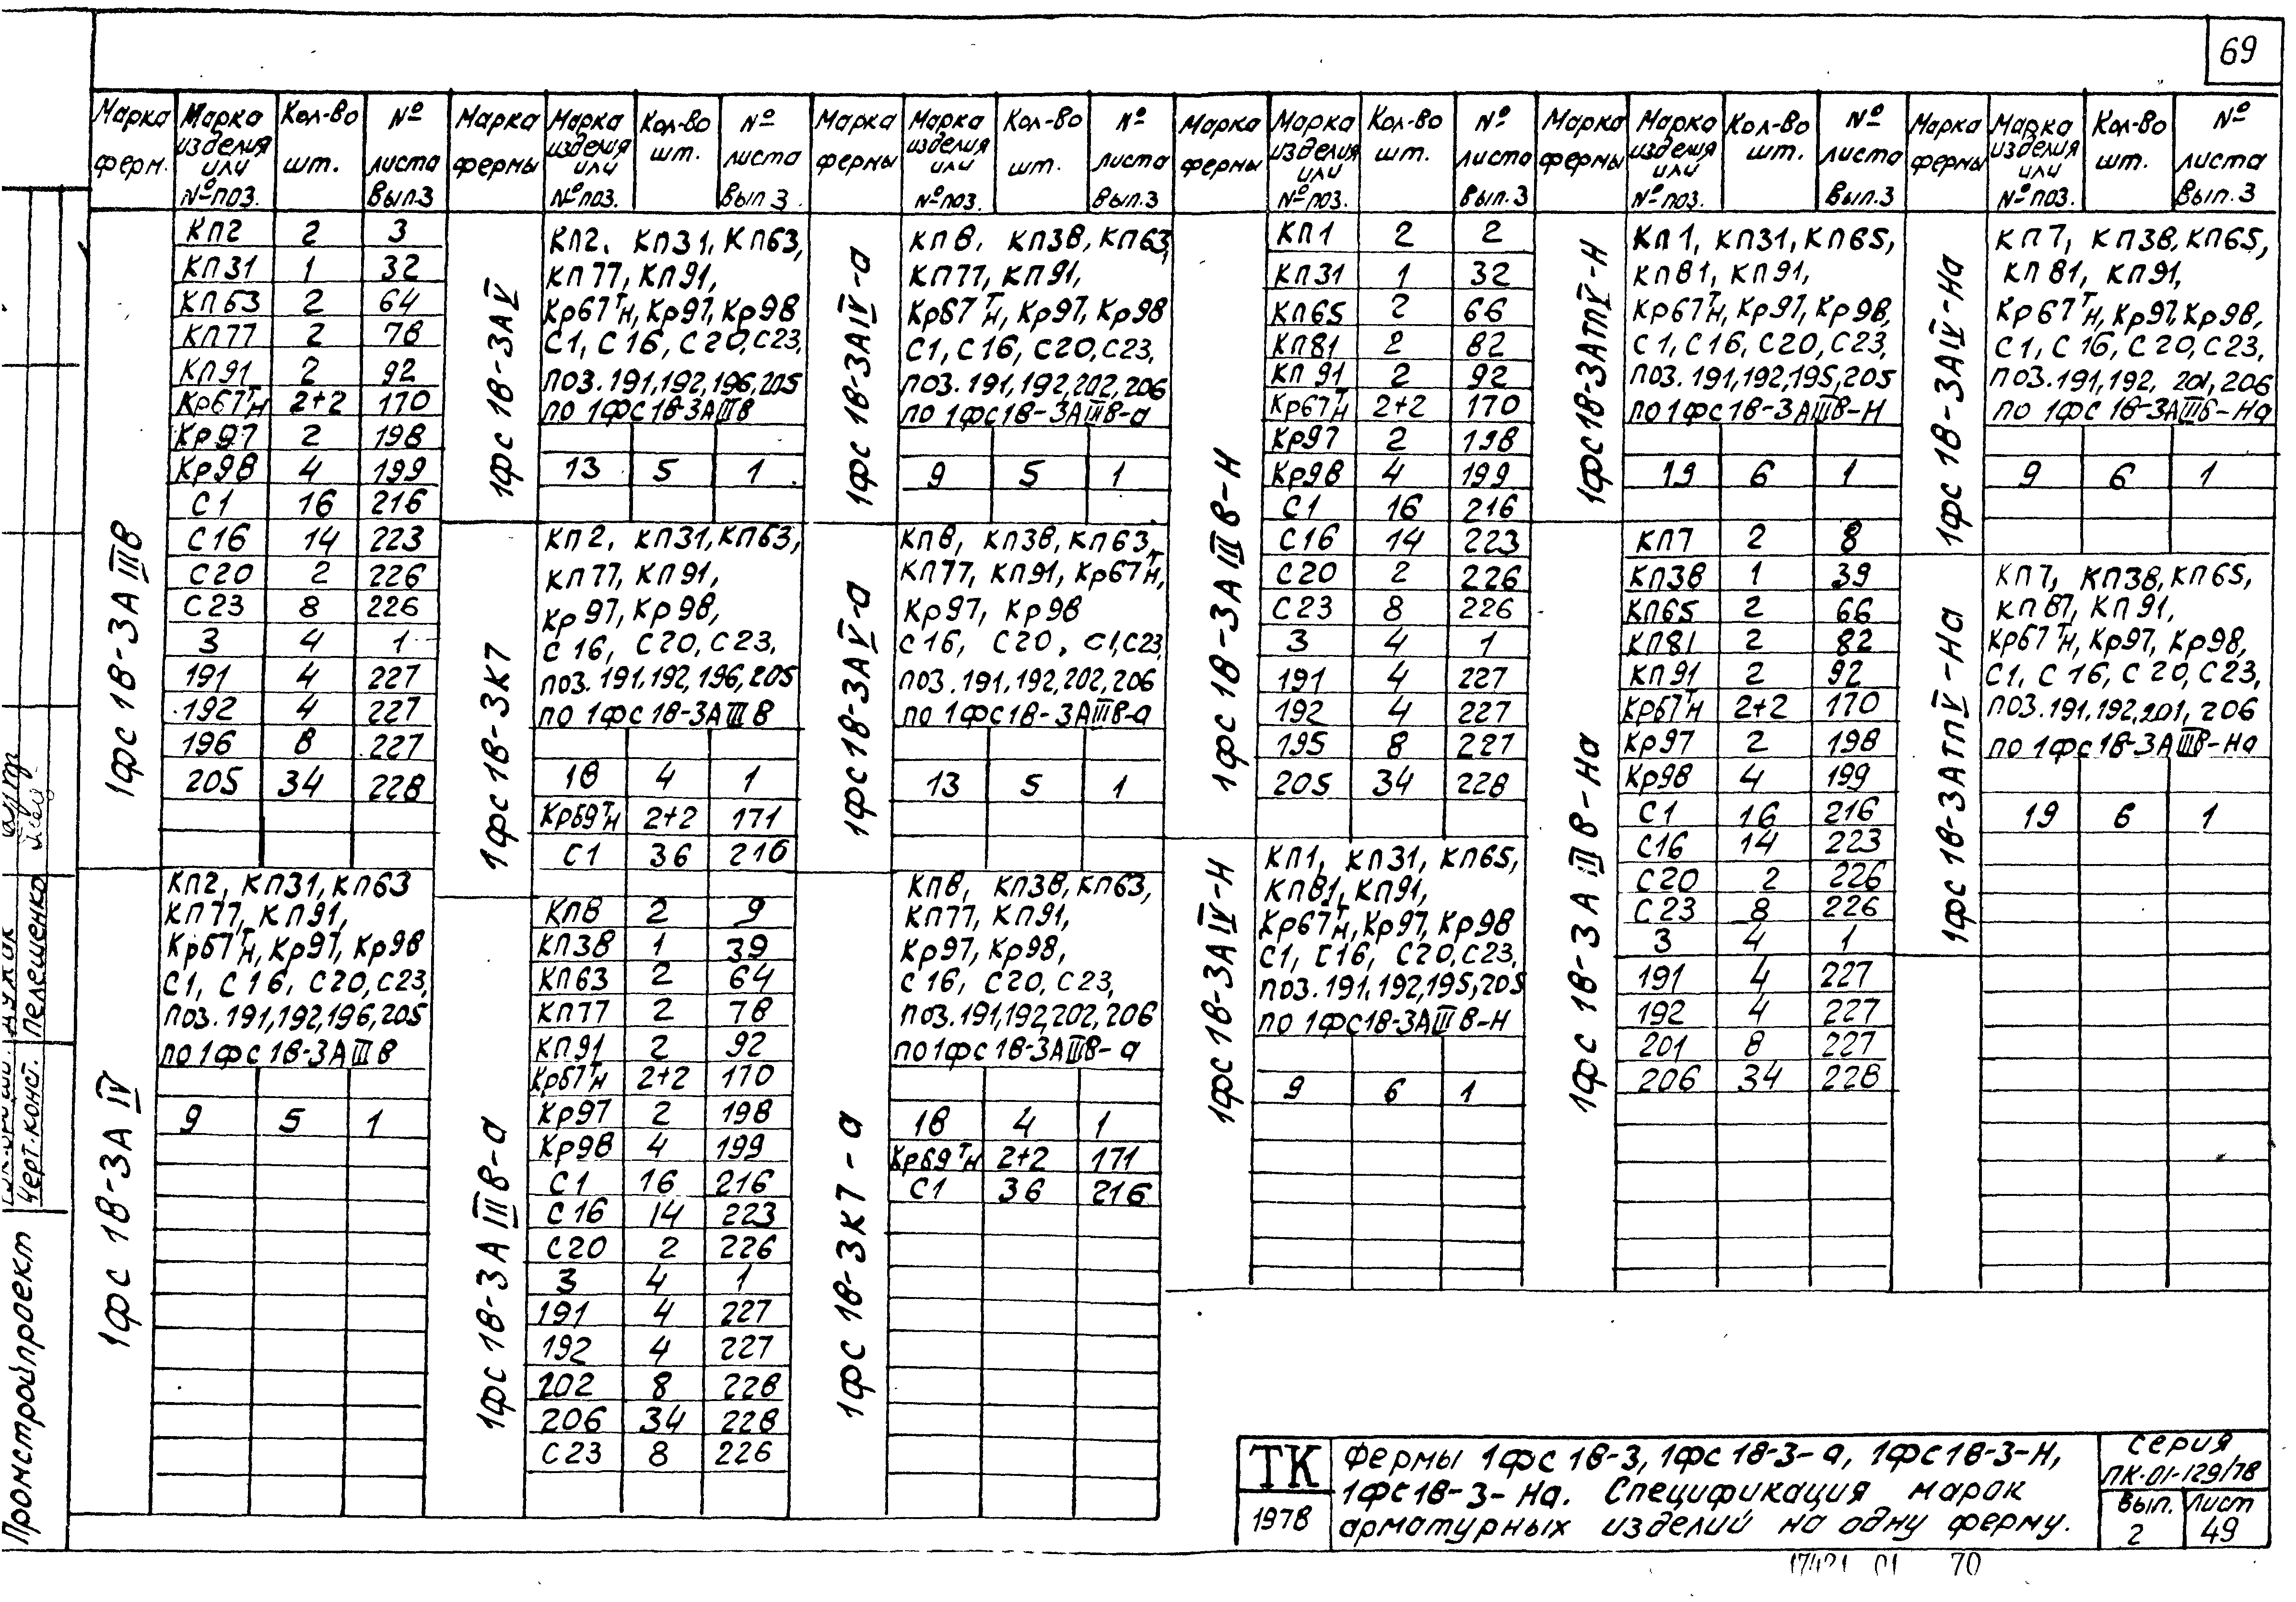 69
Марка ферм. | Марка изделия или № поз. | Кол-во шт. | № листа Вып.3
1фс 18-3А IIIв
КП2 2 3
КП31 1 32
КП63 2 64
КП77 2 78
КП91 2 92
Кр67 т н 2+2 170
Кр97 2 198
Кр98 4 199
С1 16 216
С16 14 223
С20 2 226
С23 8 226
3 4 1
191 4 227
192 4 227
196 8 227
205 34 228
1фс 18-3А IV
КП2, КП31, КП63
КП77, КП91,
Кр67 т н, Кр97, Кр98
С1, С16, С20, С23,
поз. 191, 192, 196, 205
по 1фс 18-3А III в
9 5 1
Марка фермы | Марка изделия или № поз. | Кол-во шт. | № листа Вып 3.
1фс 18-3А V
КП2, КП31, КП63,
КП77, КП91,
Кр67 т н, Кр97, Кр98
С1, С16, С20, С23,
поз. 191, 192, 196, 205
по 1фс 18-3А III в
13 5 1
1фс 18-3К7
КП2, КП31, КП63,
КП77, КП91,
Кр97, Кр98,
С16, С20, С23,
поз. 191, 192, 196, 205
по 1фс 18-3А III в
18 4 1
Кр69 т н 2+2 171
С1 36 216
1фс 18-3А III в-а
КП8 2 9
КП38 1 39
КП63 2 64
КП77 2 78
КП91 2 92
Кр67 т н 2+2 170
Кр97 2 198
Кр98 4 199
С1 16 216
С16 14 223
С20 2 226
3 4 1
191 4 227
192 4 227
202 8 228
206 34 228
С23 8 226
Марка фермы | Марка изделия или № поз. | Кол-во шт. | № листа Вып.3
1фс 18-3А IV-а
КП8, КП38, КП63,
КП77, КП91,
Кр67 т н, Кр97, Кр98
С1, С16, С20, С23,
поз. 191, 192, 202, 206
по 1фс 18-3А III в-а
9 5 1
1фс 18-3А V-а
КП8, КП38, КП63,
КП77, КП91, Кр67 т н,
Кр97, Кр98
С16, С20, С1, С23,
поз. 191, 192, 202, 206
по 1фс 18-3А III в-а
13 5 1
1фс 18-3К7-а
КП8, КП38, КП63,
КП77, КП91,
Кр97, Кр98,
С16, С20, С23,
поз. 191, 192, 202, 206
по 1фс 18-3А III в-а
18 4 1
Кр69 т н 2+2 171
С1 36 216
Марка фермы | Марка изделия или № поз. | Кол-во шт. | № листа Вып.3
1фс 18-3А III в-н
КП1 2 2
КП31 1 32
КП65 2 66
КП81 2 82
КП91 2 92
Кр67 т н 2+2 170
Кр97 2 198
Кр98 4 199
С1 16 216
С16 14 223
С20 2 226
С23 8 226
3 4 1
191 4 227
192 4 227
195 8 227
205 34 228
1фс 18-3А IV-н
КП1, КП31, КП65,
КП81, КП91,
Кр67 т н, Кр97, Кр98
С1, С16, С20, С23,
поз. 191, 192, 195, 205
по 1фс 18-3А III в-н
9 6 1
Марка фермы | Марка изделия или № поз. | Кол-во шт. | № листа Вып.3
1фс 18-3Атп V-н
КП1, КП31, КП65,
КП81, КП91,
Кр67 т н, Кр97, Кр98,
С1, С16, С20, С23,
поз. 191, 192, 195, 205
по 1фс 18-3А III в-н
19 6 1
1фс 18-3А III в-на
КП7 2 8
КП38 1 39
КП65 2 66
КП81 2 82
КП91 2 92
Кр67 т н 2+2 170
Кр97 2 198
Кр98 4 199
С1 16 216
С16 14 223
С20 2 226
С23 8 226
3 4 1
191 4 227
192 4 227
201 8 227
206 34 228
Марка фермы | Марка изделия или № поз. | Кол-во шт. | № листа Вып.3
1фс 18-3А IV-на
КП7, КП38, КП65,
КП81, КП91,
Кр67 т н, Кр97, Кр98,
С1, С16, С20, С23,
поз. 191, 192, 201, 206
по 1фс 18-3А III в-на
9 6 1
1фс 18-3Атп V-на
КП7, КП38, КП65,
КП81, КП91,
Кр67 т н, Кр97, Кр98,
С1, С16, С20, С23,
поз. 191, 192, 201, 206
по 1фс 18-3А III в-на
19 6 1
Промстройпроект
Черт. конст. Пелешенко
ТК
1978
Фермы 1фс 18-3, 1фс 18-3-а, 1фс 18-3-н,
1фс 18-3-на. Спецификация марок
арматурных изделий на одну ферму.
серия
ПК-01-129/78
Вып. Лист
2 49
17421 01 70